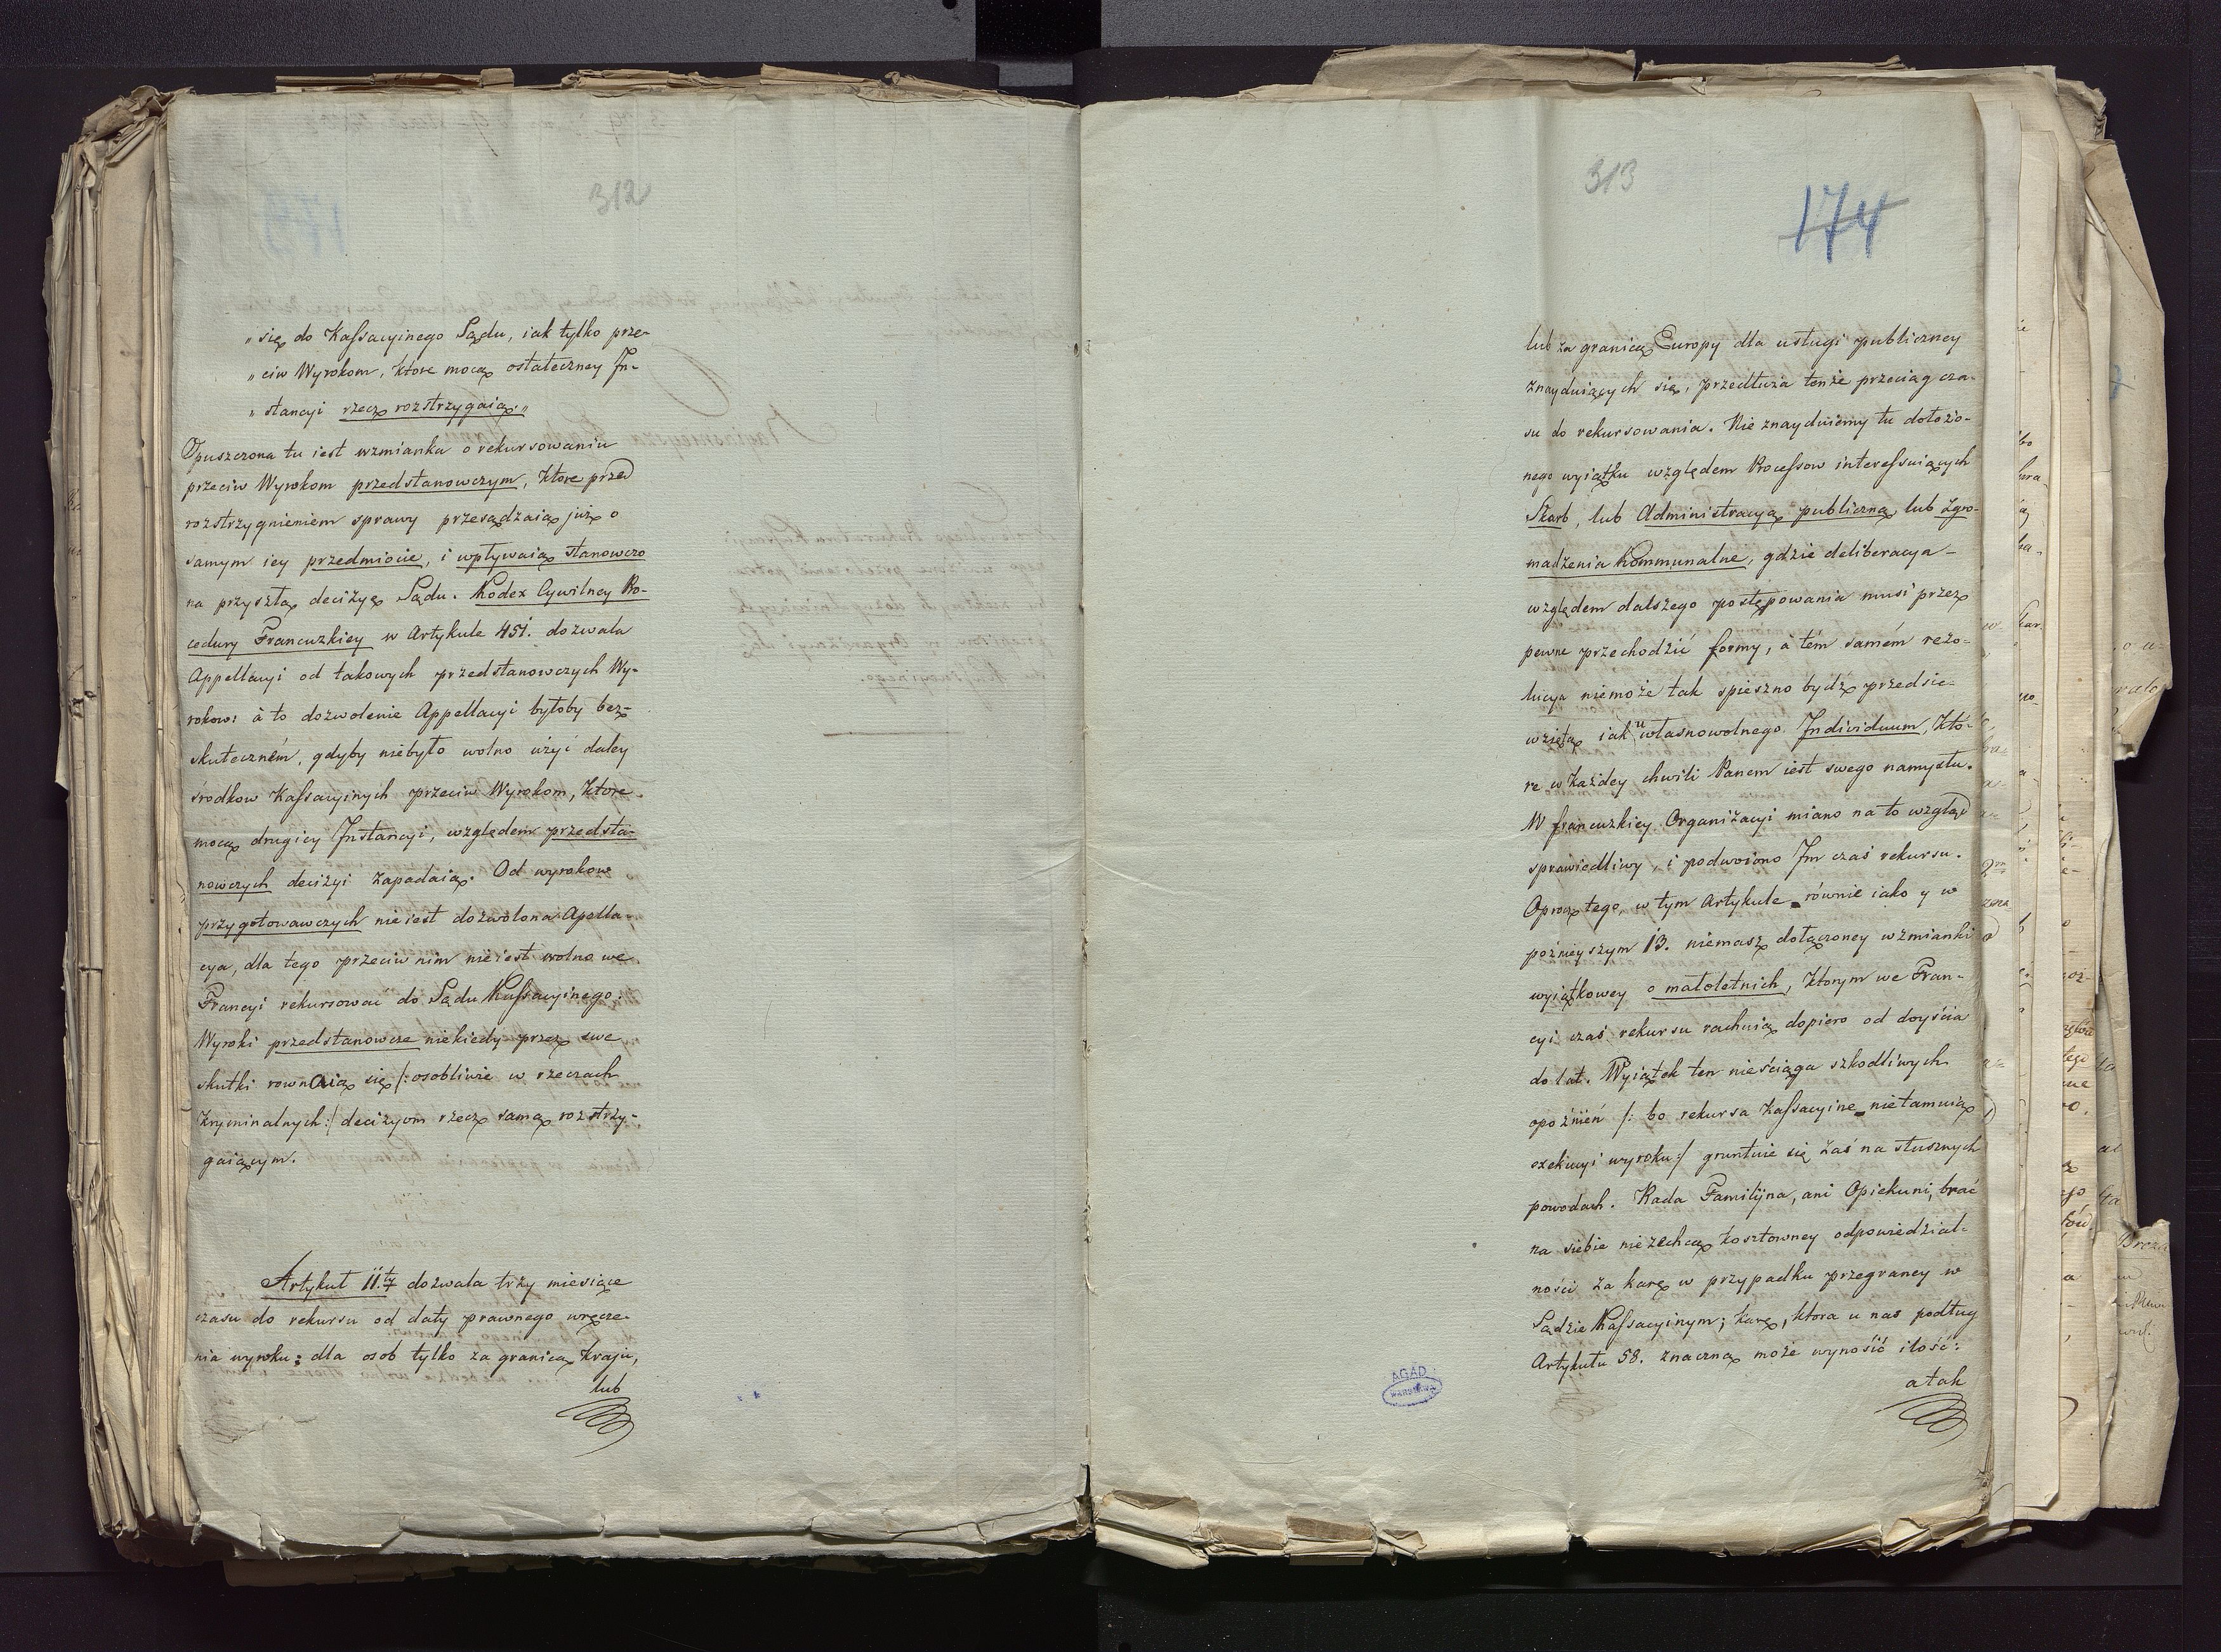 312
„się do Kaſsacyinego Sądu, iak tylko prze-
„ciw Wyrokom, które mocą ostateczney In-
„stancyi rzecz rozstrzygaią„
Opuszczona tu iest wzmianka o rekursowaniu
przeciw Wyrokom przedstanowczym, które przed
rozstrzygnieniem sprawy przesądzaią już o
samym iey przedmiocie, i wpływaią stanowczo
na przyszłą decizyę Sądu. Kodex Cywilney Pro-
cedury Francuzkiey w Artykule 451. dozwala
Appellacyi od takowych przedstanowczych Wy-
rokow: à to dozwolenie Appellacyi byłoby bez-
skuteczném, gdyby niebyło wolno użyć daley
środkow Kaſsacyinych przeciw Wyrokom, które
mocą drugiey Instancyi, względem przedsta-
nowczych decizyi zapadaią. Od wyrokow
przygotowawczych nie iest dozwolona Apella-
cya, dla tego przeciw nim nie iest wolno we
Francyi rekursować do Sądu Kaſsacyinego:
Wyroki przedstanowcze niekiedy przez swe
skutki rownaią się /: osobliwie w rzeczach
kryminalnych :/ decizyom rzecz samą rozstrzy-
gaiącym.
Artykuł 11.ty dozwala trzy miesiące
czasu do rekursu od daty prawnego wręcze-
nia wyroku; dla osob tylko za granicą Kraju,
lub
313
174
lub za granicą Europy dla usługi publiczney
znayduiących się, przedłuża tenże przeciąg cza-
su do rekursowania. Nie znayduiemy tu dołożo-
nego wyiątku względem Proceſsow intereſsuiących
Skarb, lub Administracyą publiczną lub Zgro-
madzenia Kommunalne, gdzie deliberacya
względem dalszego postępowania musi przez
pewne przechodzić formy, à tém samém rezo-
lucya niemoże tak spieszno bydź przedsie-
wziętą iak u własnowolnego Individuum, któ-
re w każdey chwili Panem iest swego namysłu.
W francuzkiey Organizacyi miano na to wzgląd
sprawiedliwy, i podwoiono Im czas rekursu.
Oprocz tego, w tym Artykule równie iako y w
poźnieyszym 13. niemasz dołączoney wzmianki
wyiątkowey o małoletnich, którym we Fran-
cyi czas rekursu rachuią dopiero od doyścia
do lat. Wyiątek ten nieściąga szkodliwych
opoźnień /: bo rekursa kaſsacyine nietamuią
exekucyi wyroku :/ gruntuie się zaś na słusznych
powodach. Rada Familijna, ani Opiekuni, brać
na siebie niezechcą kosztowney odpowiedzial-
ności za karę w przypadku przegraney w
Sądzie Kaſsacyinym; karę, ktora u nas podług
Artykułu 58. znaczną może wynosić ilość:
a tak
AGAD
WARSZAWA